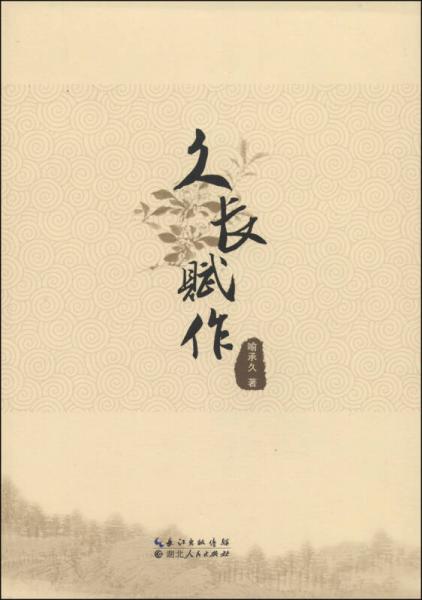 久长赋作
喻承久 著
长江出版传媒
湖北人民出版社